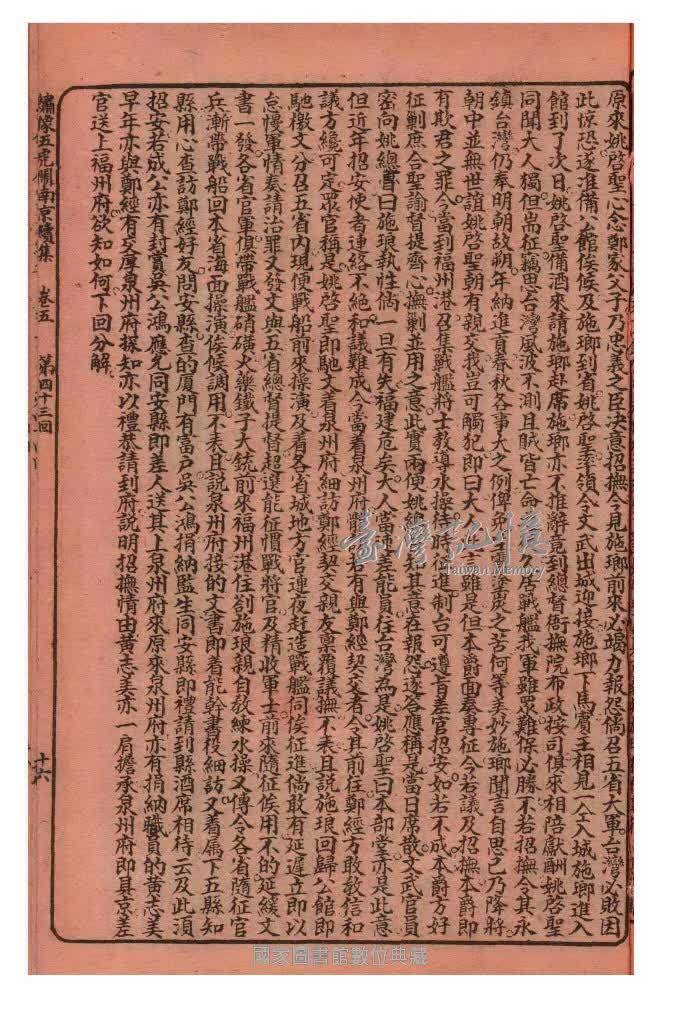 原來姚啓聖心念鄭家父子乃忠義之臣决意招撫今見施瑯前來必竭力報怨倘召五省大軍台灣必敗因
此惊恐遂准備公館俟候及施瑯到省姚啓聖率領令文武出城迎接施瑯下馬賓主相見一仝入城施瑯進入
館到了次日姚啓聖備酒來請施瑯赴席施瑯亦不推辭竟到總督衙撫院布政按司俱來相陪獻酬姚啓聖
同聞大人獨但耑征竊思台灣風波不測且賊皆亡命居戰艦我軍雖眾難保必勝不若招撫令其永
鎮台灣仍奉明朝故朔年納進貢春秋各事大之例俾免生靈塗炭之苦何等美妙施瑯聞言自思己乃降將
朝中並無世誼姚啓聖朝有親交我豈可觸犯即曰大人所見雖是但本爵面奏專征今若議及招撫本爵即
有欺君之罪今當到福州港召集戰艦將士教導水操待時征進制台可遵旨差官招安如若不成本爵方好
征剿庶合聖諭督提齊心撫剿並用之意此實兩便姚總督知其意在報怨遂答應稱是當日席散文武官員
密向姚總督曰施琅執性倘一旦有失福建危矣大人當速差能員往台灣為是姚啓聖曰本部堂亦是此意
但近年招安使者連絡不絶和議難成今當着泉州府有與鄭經契交者令其前往鄭經方敢教信和
議方纔可定眾官稱是姚啓聖即馳文着泉州府細訪鄭經契交親友禀覆議撫不表且說施琅回歸公館即
馳檄文分召五省內現便戰船前來操演及着各省城地方官連夜赶造戰艦伺俟征進倘敢有延遲立即以
怠慢軍情奏請治罪又發文與五省總督提督超選能征慣戰將官及精收軍士前來隨征候用不的延緩文
書一發各省官軍俱帶戰艦硝磺火藥鐵子大銃前來福州港住劄施琅親自教練水操又傳令各省隨征官
兵漸帶戰船回本省海面操演俟候調用不表且說泉州府接的文書即着能幹書役細訪又着屬下五縣知
縣用心查訪鄭經好友問安縣查的厦門有富戶吳公鴻捐納監生同安縣即禮請到縣酒席相待云及此湏
招安若成公亦有封賞吳公鴻應允同安縣即差人送其上泉州府來原來泉州府亦有捐納職員的黄志美
早年亦與鄭經有交厚泉州府探知亦以禮恭請到府說明招撫情由黄志美亦一肩擔承泉州府即具京差
官送上福州府欲知如何下回分解
繡像五虎鬧南京續集 卷五 第四十三回 十六
臺灣記憶
Taiwan Memory
國家圖書館數位典藏